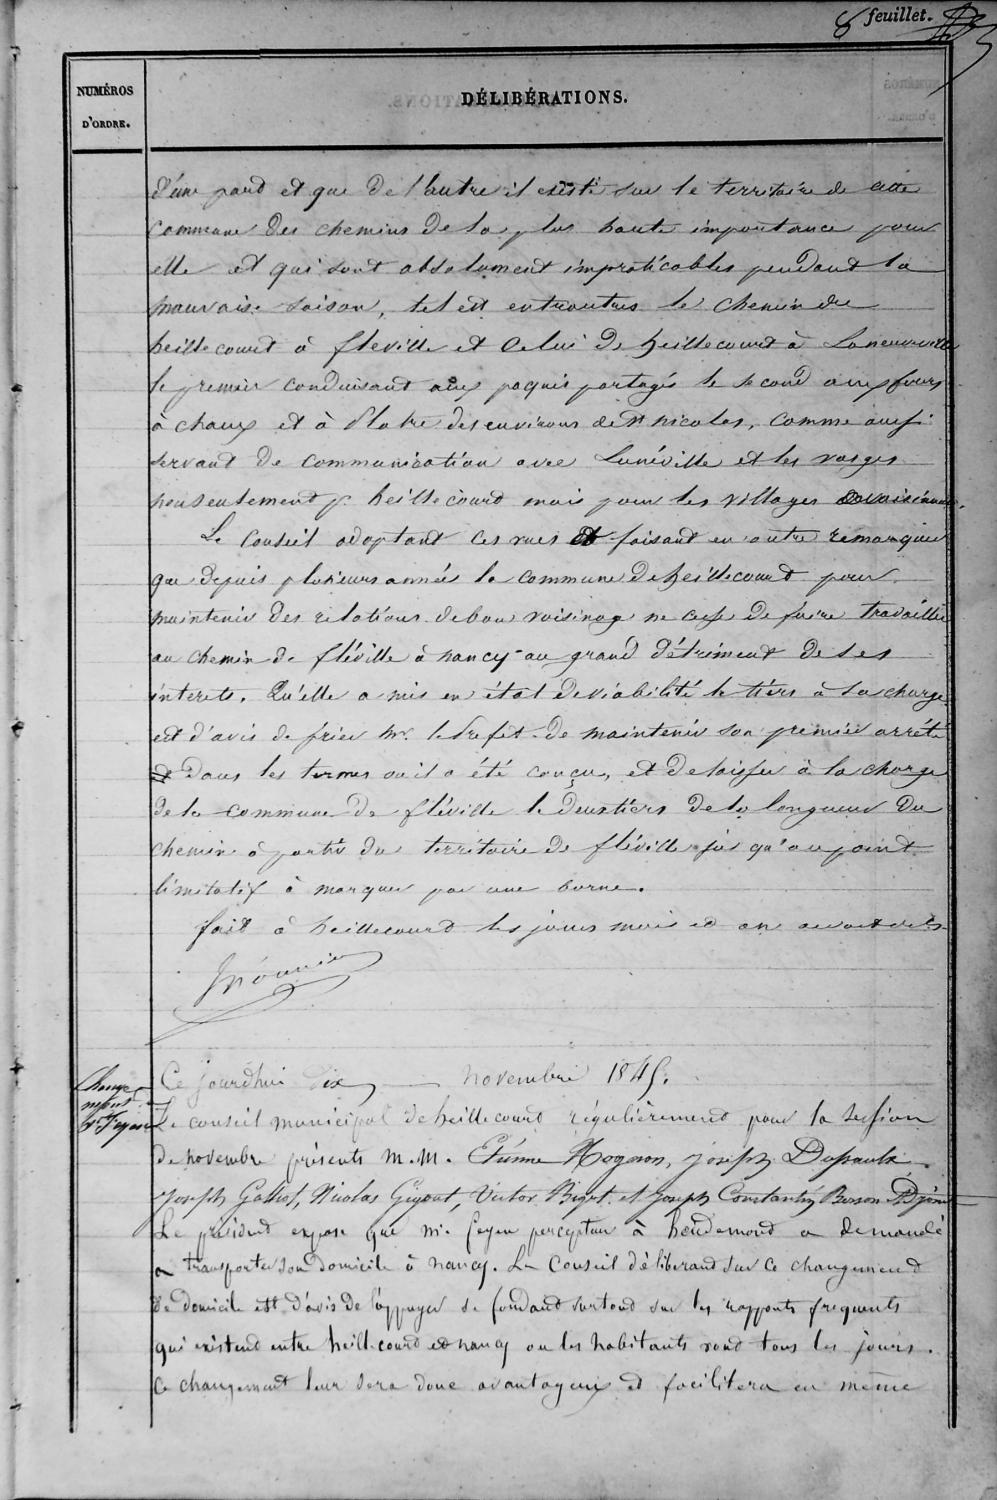 8 feuillet.
NUMÉROS
D'ORDRE.
DÉLIBÉRATIONS.
d'une pard et que de l'autre il existe sur le territoire de cette
commune des chemins de la plus haute importance pour
elle et qui sont absolument impraticables pendant la
mauvaise saison, tel est entr'autres le chemin de
heillecourt à fléville et celui de heillecourt à Laneuveville
le premier conduisant aux paquis partagés le second aux fours
à chaux et à platre des environs de St nicolas, comme aussi
servant de communication avec Lunéville et les vosges
non seulement pr heillecourt mais pour les villages
Le Conseil adoptant ces vues et faisant en outre remarquer
que depuis plusieurs année la commune de heillecourt pour
maintenir des relations de bon voisinage ne cesse de faire travailler
au chemin de fléville à nancy au grand détriment de ses
interets. Qu'elle a mis en état de viabilité le tiers à sa charge
est d'avis de prier Mr. le Prefet de maintenir son premier arrêté
dans les termes ou il a été conçu, et de laisser à la charge
de la commune de fléville le deux tiers de la longueur du
chemin à partir du territoire de fléville jus qu'au point
limitatif à marquer par une borne.
fait à heillecourd les jours mois et an avant dits
Change-
ment
Mr Feyen
Ce jourd'hui dix novembre 1845.
Le conseil municipal de heillecourd régulièrement pour la session
de novembre présents M.M. Etienne Hognon, joseph Dussaulx
Joseph Galliot, Nicolas Gigout, Victor Bizet et Joseph Constantin Besson Adjoint
Le président expose que mr. feyen percepteur à houdemond a demandé
a transporter son domicile à nancy. Le Conseil déliberand sur ce changement
de domicile est d'avis de l'appuyer se fondand surtoud sur les rapports frequents
qui existend entre heillecourd et nancy ou les habitants vond tous les jours.
Ce changement leur sera donc avantageux et facilitera en même